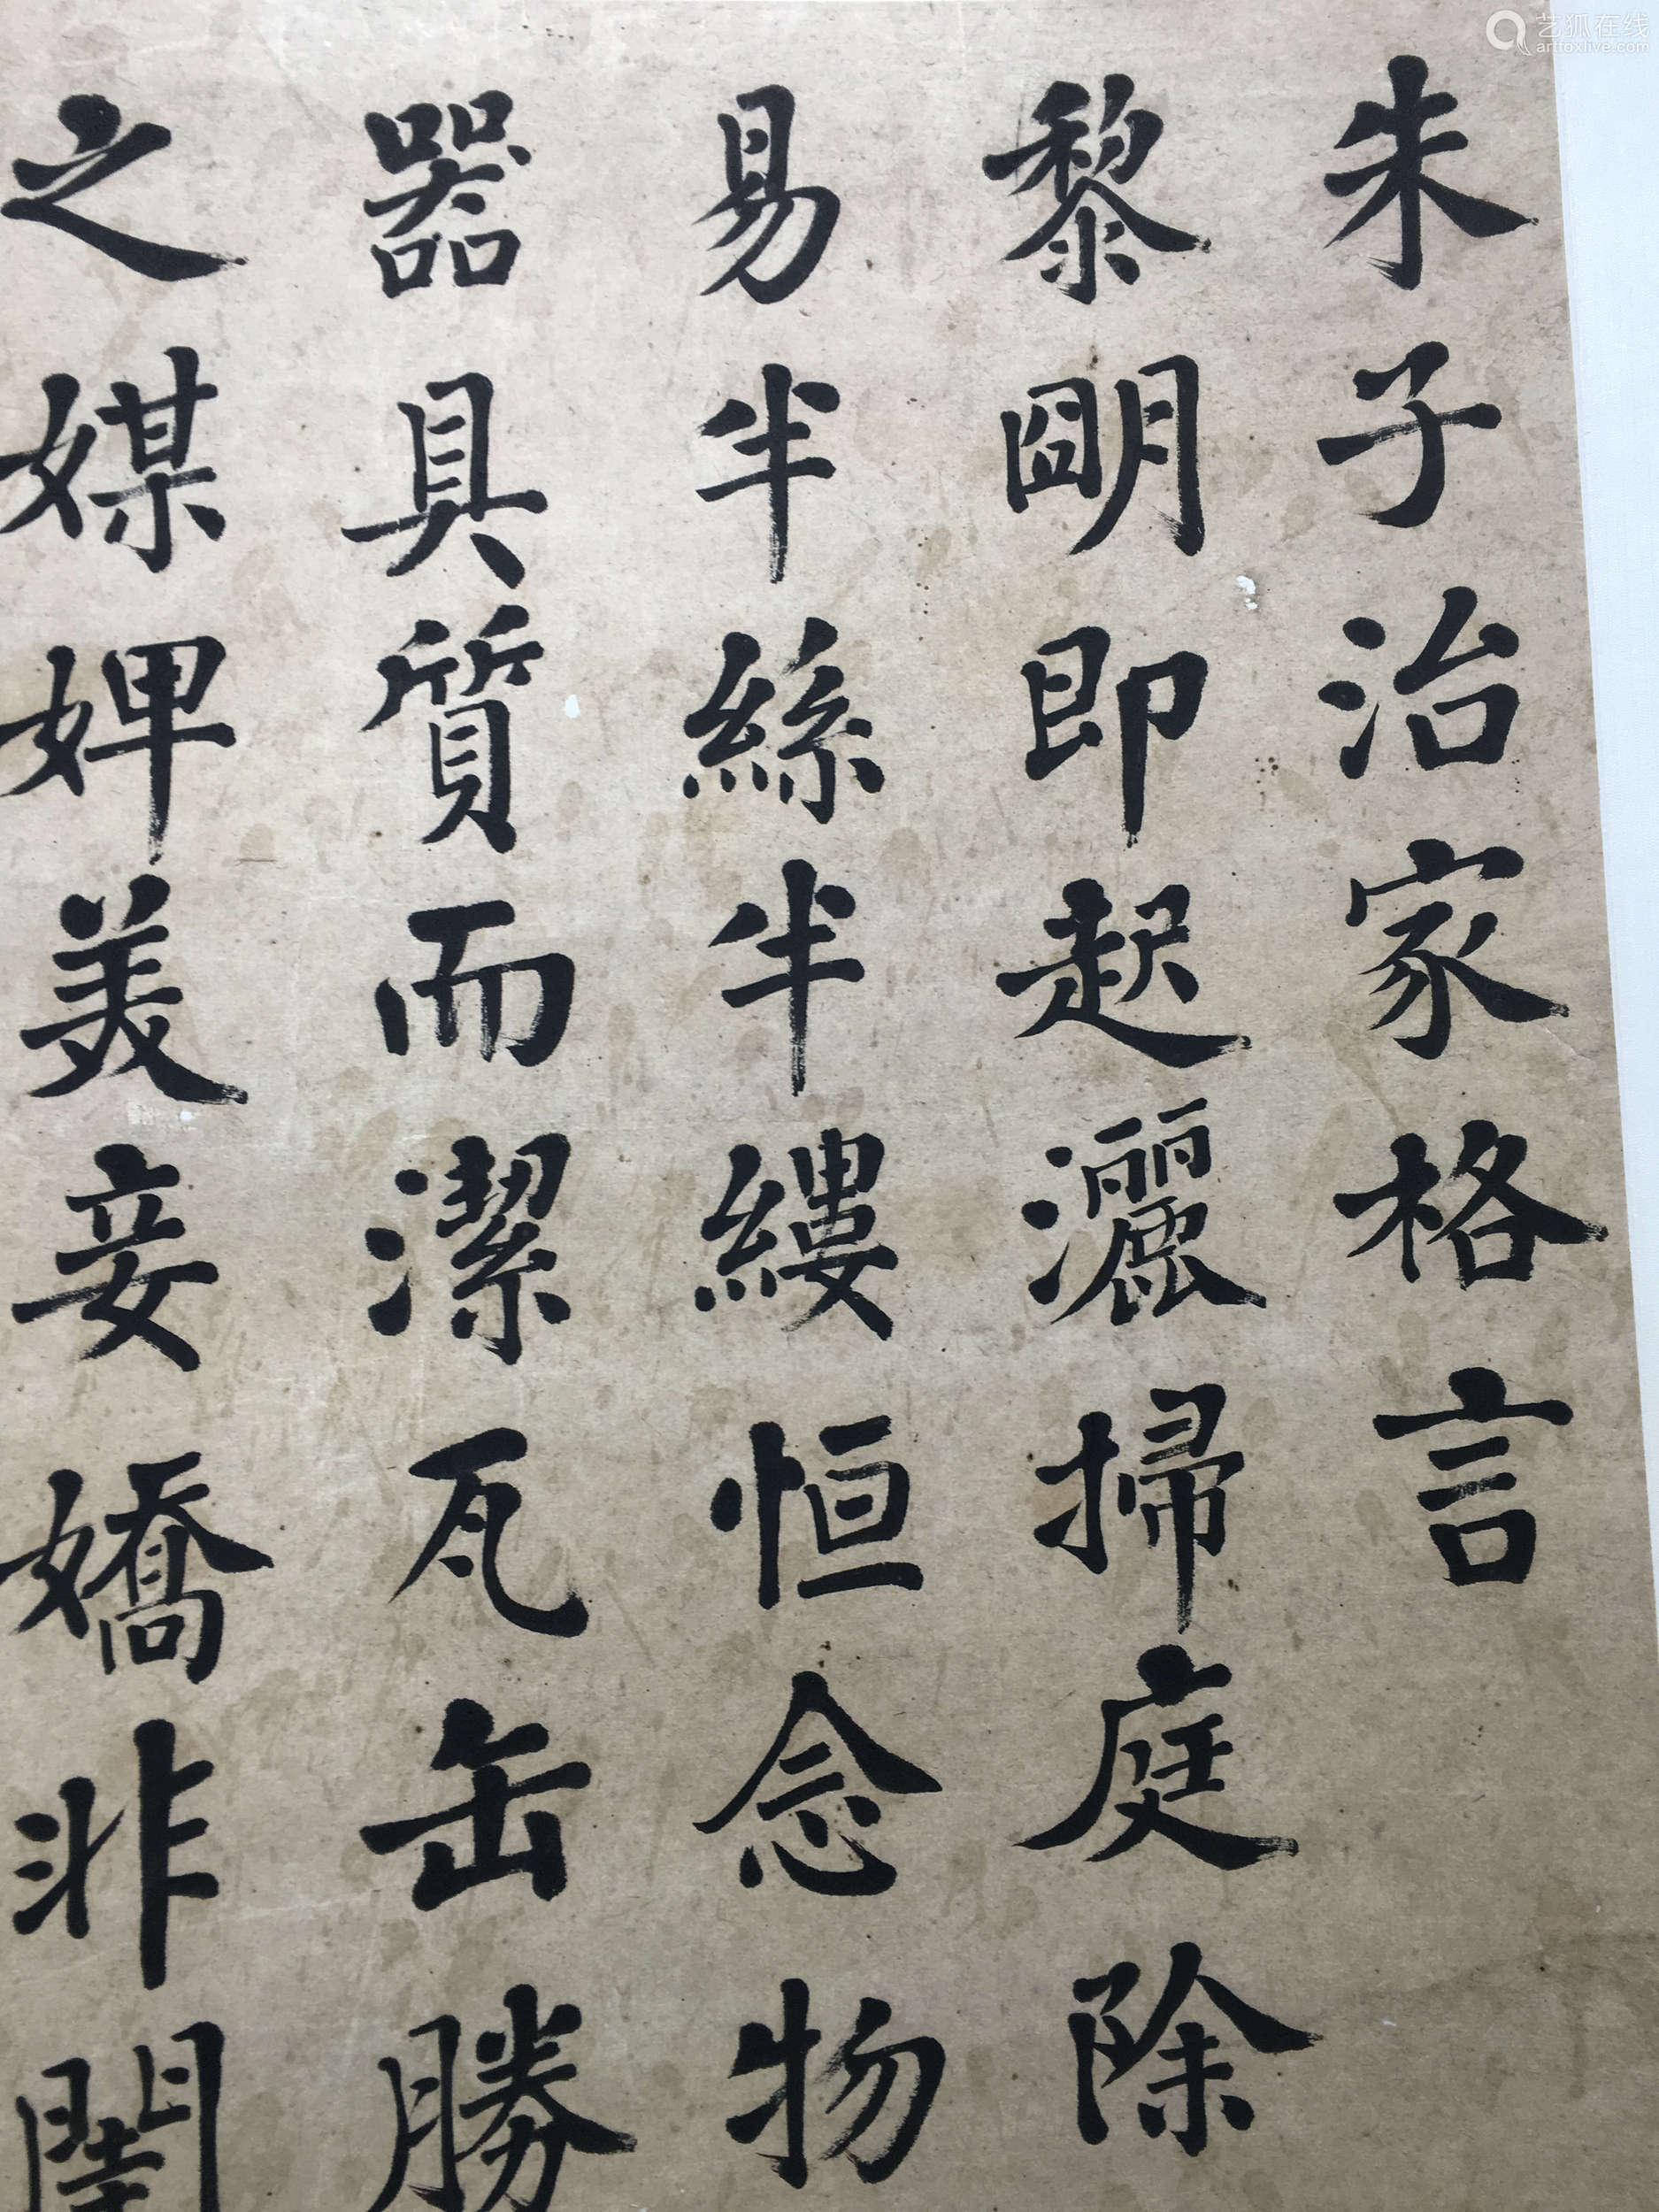 朱子治家格言
黎眀即起灑掃庭除
易半絲半縷恒念物
器具質而潔瓦缶勝
之媒婢美妾嬌非閨
艺狐在线
artfoxlive.com